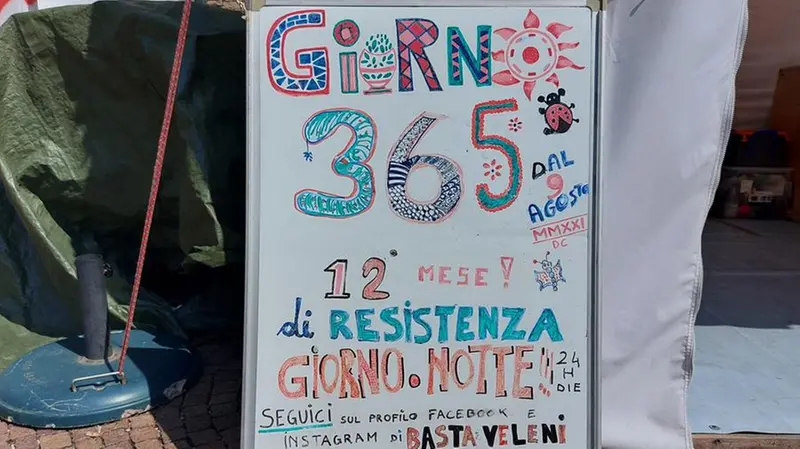 GIORNO
365
DAL
9
AGOSTO
MMXXI
DC
12° MESE!
di RESISTENZA
GIORNO.NOTTE!!
24
H
DIE
SEGUICI SUL PROFILO FACEBOOK E
INSTAGRAM di BASTA VELENI